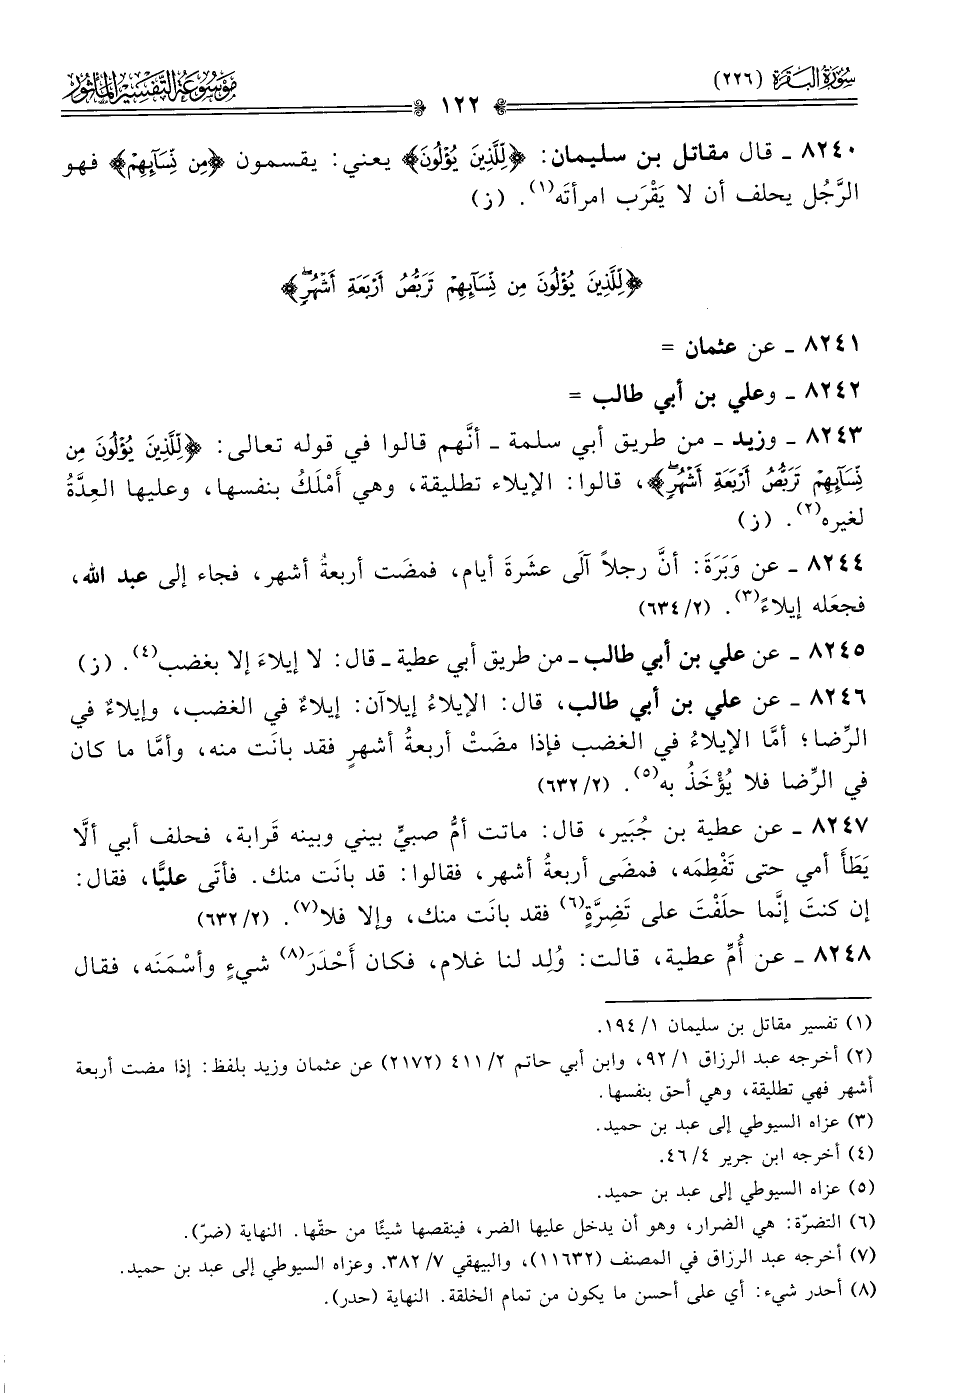 سُورَةُ البَقَرَة (٢٢٦)
١٢٢
مَوْسُوعَة التَّفْسِيرِ المَأْثُور
٨٢٤٠ ـ قال مقاتل بن سليمان: ﴿لِّلَّذِينَ يُؤْلُونَ﴾ يعني: يقسمون ﴿مِن نِّسَآئِهِمْ﴾ فهو
الرَّجُل يحلف أن لا يَقْرَب امرأتَه(١). (ز)
﴿لِّلَّذِينَ يُؤْلُونَ مِن نِّسَآئِهِمْ تَرَبُّصُ أَرْبَعَةِ أَشْهُرٍۖ﴾
٨٢٤١ ـ عن عثمان =
٨٢٤٢ ـ وعلي بن أبي طالب =
٨٢٤٣ ـ وزيد ـ من طريق أبي سلمة ـ أنَّهم قالوا في قوله تعالى: ﴿لِّلَّذِينَ يُؤْلُونَ مِن
نِّسَآئِهِمْ تَرَبُّصُ أَرْبَعَةِ أَشْهُرٍۖ﴾، قالوا: الإيلاء تطليقة، وهي أَمْلَكُ بنفسها، وعليها العِدَّةُ
لغيره(٢). (ز)
٨٢٤٤ ـ عن وَبَرَةَ: أنَّ رجلاً آلَى عشَرةَ أيام، فمضَت أربعةُ أشهر، فجاء إلى عبد الله،
فجعَله إيلاءً(٣). (٢/ ٦٣٤)
٨٢٤٥ ـ عن علي بن أبي طالب ـ من طريق أبي عطية ـ قال: لا إيلاءَ إلا بغضب(٤). (ز)
٨٢٤٦ ـ عن علي بن أبي طالب، قال: الإيلاءُ إيلاآن: إيلاءٌ في الغضب، وإيلاءٌ في
الرِّضا؛ أمَّا الإيلاءُ في الغضب فإذا مضَتْ أربعةُ أشهرٍ فقد بانَت منه، وأمَّا ما كان
في الرِّضا فلا يُؤْخَذُ به(٥). (٢/ ٦٣٢)
٨٢٤٧ ـ عن عطية بن جُبَير، قال: ماتت أمُّ صبيٍّ بيني وبينه قَرابة، فحلف أبي ألَّا
يَطَأَ أمي حتى تَفْطِمَه، فمضَى أربعةُ أشهر، فقالوا: قد بانَت منك. فأتَى عليًّا، فقال:
إن كنتَ إنَّما حلَفْتَ على تَضِرَّةٍ(٦) فقد بانَت منك، وإلا فلا(٧). (٢/ ٦٣٢)
٨٢٤٨ ـ عن أُمِّ عطية، قالت: وُلِد لنا غلام، فكان أَحْدَرَ(٨) شيءٍ وأسْمَنَه، فقال
(١) تفسير مقاتل بن سليمان ١/ ١٩٤.
(٢) أخرجه عبد الرزاق ١/ ٩٢، وابن أبي حاتم ٢/ ٤١١ (٢١٧٢) عن عثمان وزيد بلفظ: إذا مضت أربعة
أشهر فهي تطليقة، وهي أحق بنفسها.
(٣) عزاه السيوطي إلى عبد بن حميد.
(٤) أخرجه ابن جرير ٤/ ٤٦.
(٥) عزاه السيوطي إلى عبد بن حميد.
(٦) التضرّة: هي الضرار، وهو أن يدخل عليها الضر، فينقصها شيئًا من حقّها. النهاية (ضرّ).
(٧) أخرجه عبد الرزاق في المصنف (١١٦٣٢)، والبيهقي ٧/ ٣٨٢. وعزاه السيوطي إلى عبد بن حميد.
(٨) أحدر شيء: أي على أحسن ما يكون من تمام الخلقة. النهاية (حدر).